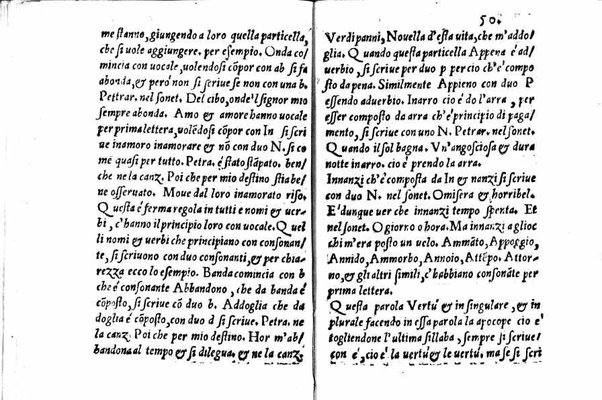 me stanno, giungendo a loro quella particella,
che si uole aggiungere. per esempio. Onda co
mincia con vocale, uolendosi cõpor con ab si fa
abonda, & però non si scriue se non con una b.
Petrar. nel sonet. Del cibo, onde'l signor mio
sempre abonda. Amo & amore hanno uocale
per prima lettera, uolẽdosi cõpor con In si scri
ue inamoro inamorare & nõ con duo N. si co
me quasi per tutto. Petra. è stato stãpato. ben/
che ne la canz. Poi che per mio destino stia be/
ne osseruato. Moue dal loro inamorato riso.
Questa é ferma regola in tutti e nomi & uer/
bi, c'hanno il principio loro con uocale. Quel
li nomi & uerbi che principiano con consonan/
te, si scriuono con duo consonanti, & per chia/
rezza ecco lo esempio. Banda comincia con b
che é consonante Abbandono, che da banda é
cõposto, si scriue cõ duo b. Addoglia che da
doglia é cõposto, con duo d si scriue. Petra. ne
la canz. Poi che per mio destino. Hor m'ab/
bandona al tempo & si dilegua. & ne la canz.
50.
Verdi panni, Nouella d'esta uita, che m'addo/
glia. Quando questa particella Appena é ad/
uerbio, si scriue per duo p per cio ch'é compo
sto da pena. Similmente Appieno con duo P
essendo aduerbio. Inarro cio é do l'arra, per
esser composto da arra ch'é principio di paga/
mento, si scriue con uno N. Petrar. nel sonet.
Quando il sol bagna. Vn'angosciosa & dura
notte inarro. cio é prendo la arra.
Innanzi ch'é composta da In & nanzi si scriue
con duo N. nel sonet. O misera & horribel.
E' dunque uer che innanzi tempo spenta. Et
nel sonet. O giorno o hora. Ma innanzi a glioc
chi m'era posto un uelo. Ammãto, Appoggio,
Annido, Ammorbo, Annoio, Attẽpo. Attor/
no, & gli altri simili, c'habbiano consonãte per
prima lettera.
Questa parola Vertú & in singulare, & in
plurale facendo in essa parola la apocope cio é
togliendone l'ultima sillaba, sempre si scriue/
con é, cio é la uertú & le uertú. ma se si scri